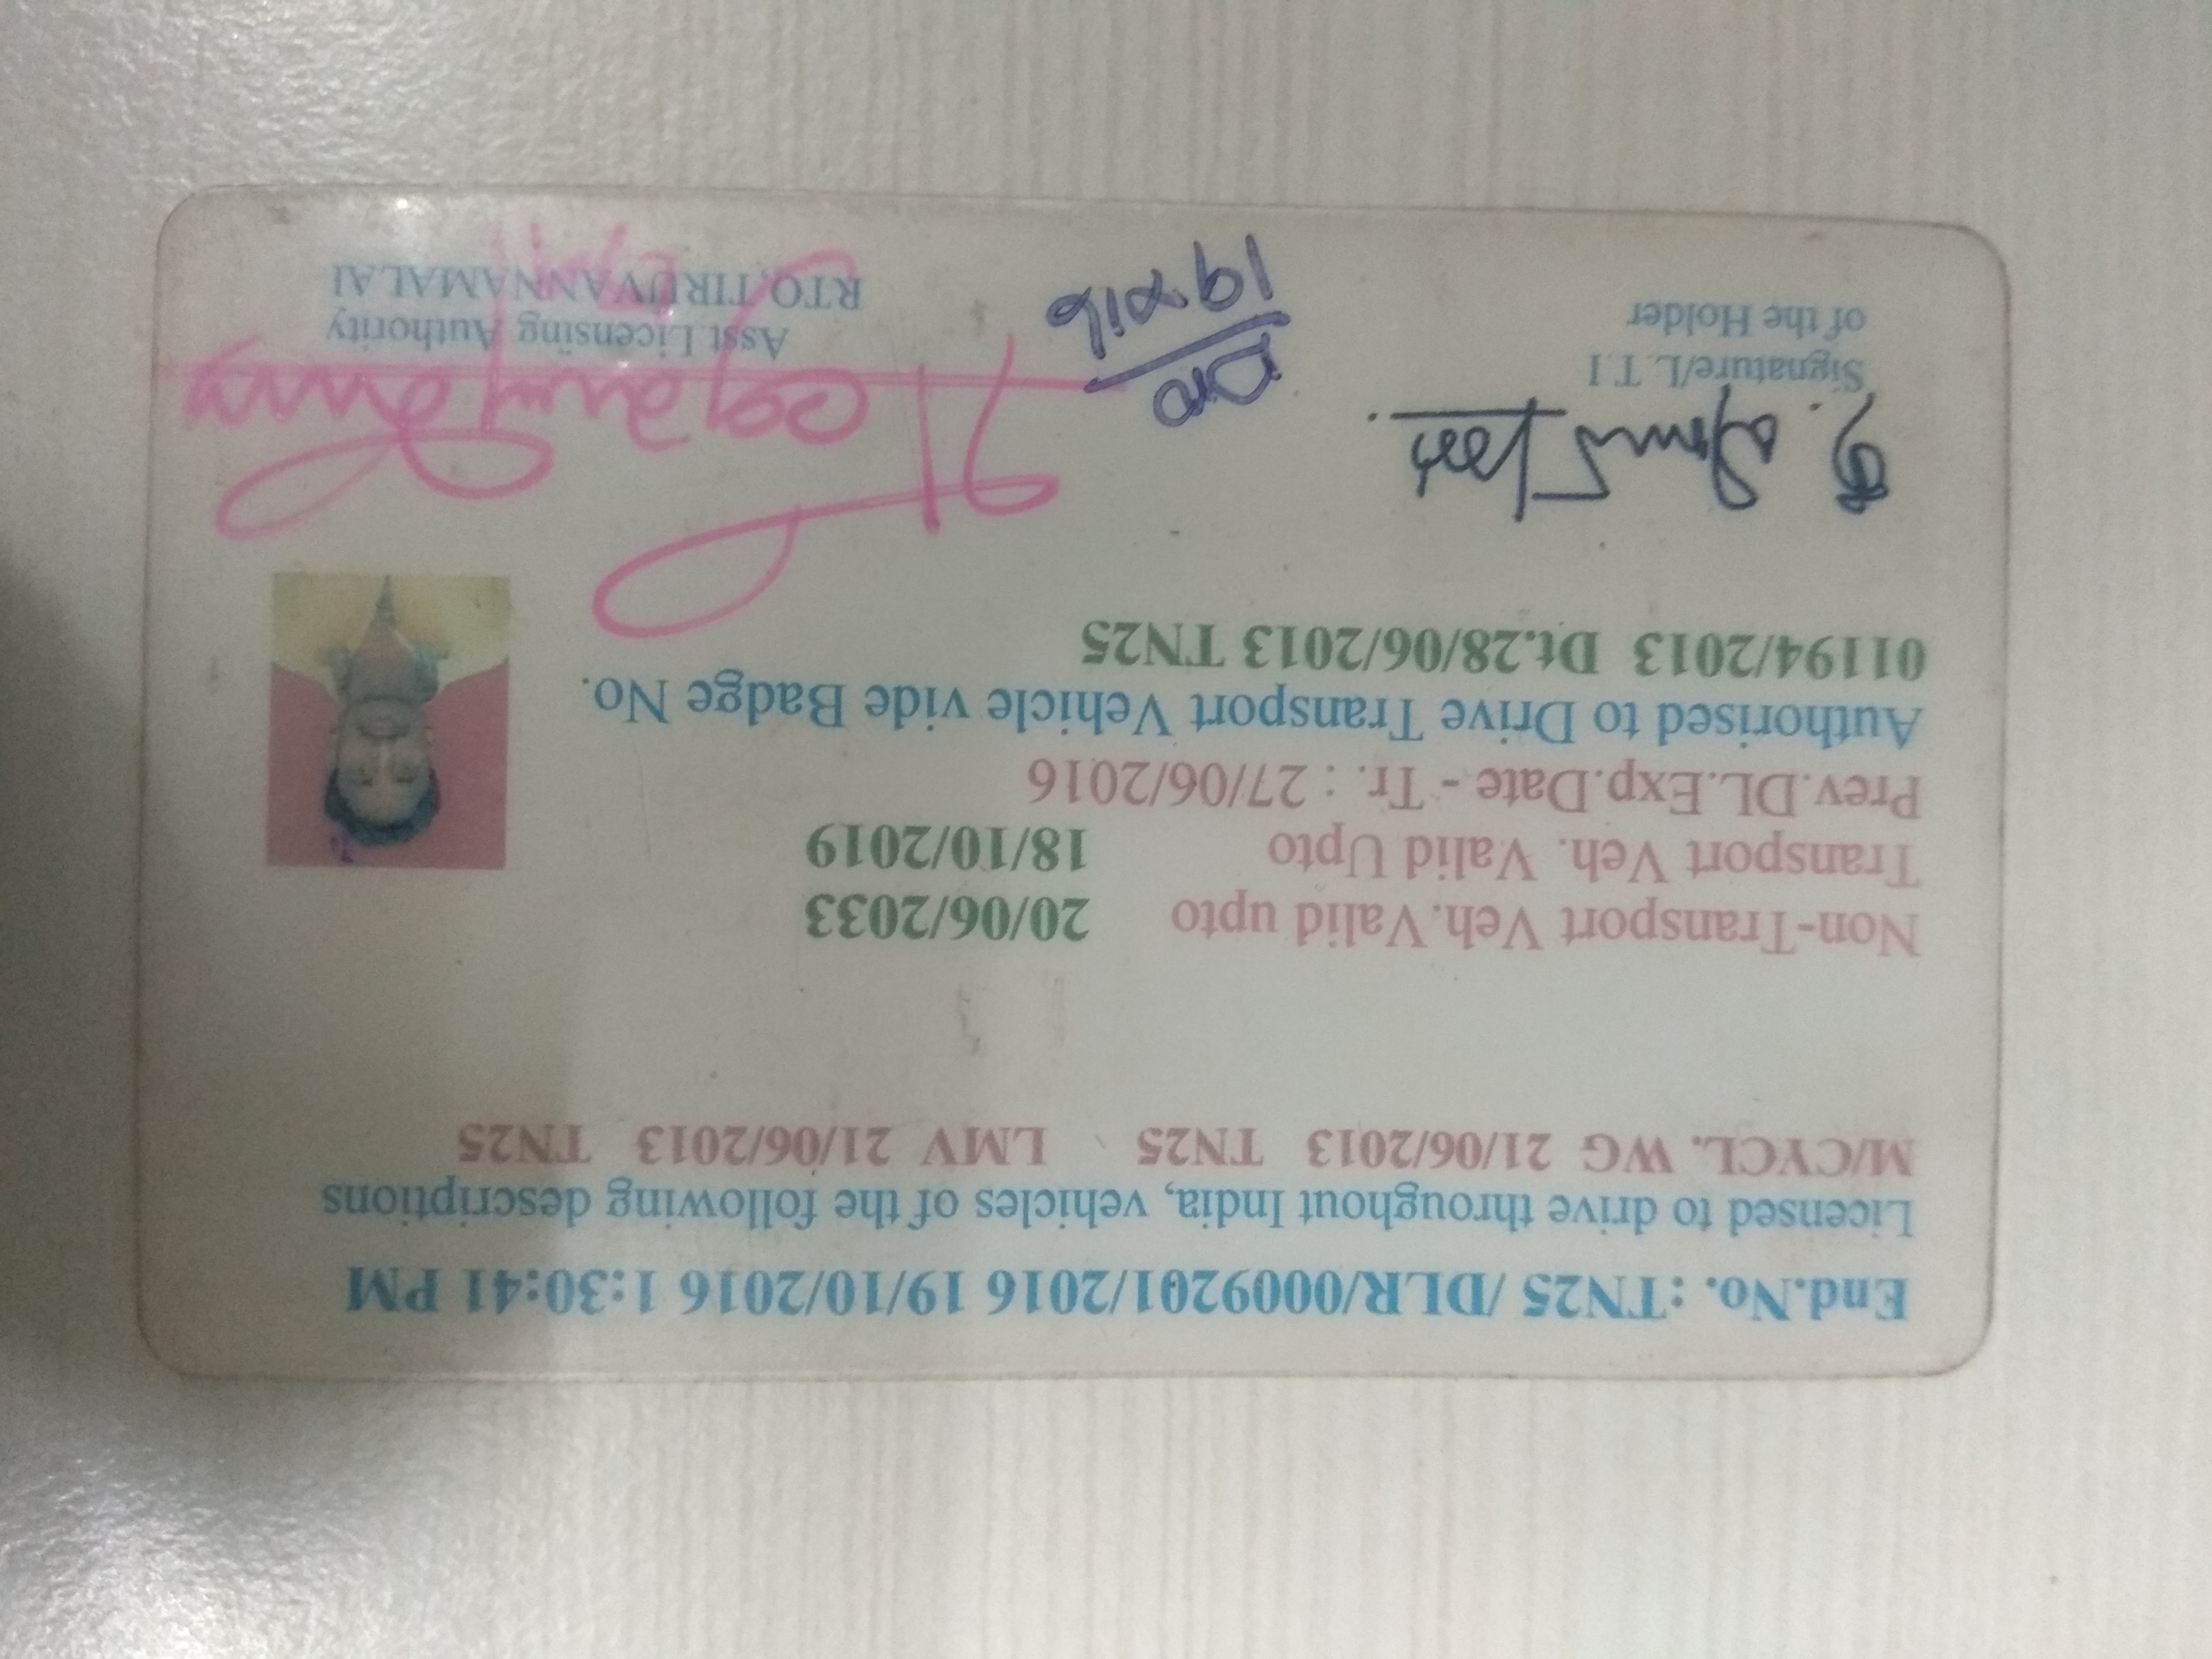 End.No. : TN25 /DLR/0009201/2016 19/10/2016 1:30:41 PM
Licensed to drive throughout India, vehicles of the following descriptions
M/CYCL. WG 21/06/2013 TN25 LMV 21/06/2013 TN25
Non-Transport Veh.Valid upto 20/06/2033
Transport Veh. Valid Upto 18/10/2019
Prev.DL.Exp.Date - Tr. : 27/06/2016
Authorised to Drive Transport Vehicle vide Badge No.
01194/2013 Dt.28/06/2013 TN25
Signature/L.T.I
of the Holder
Asst Licensing Authority
RTO,TIRUVANNAMALAI